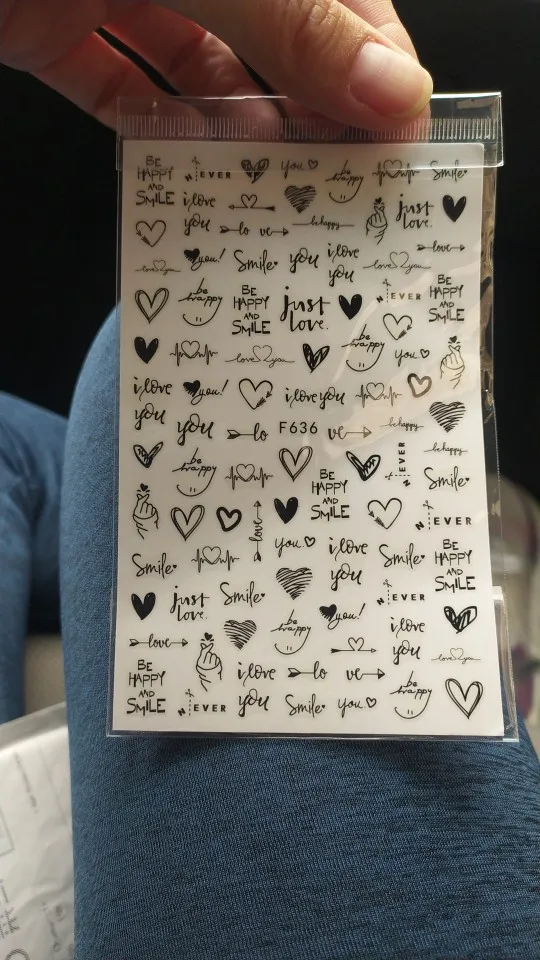 BE
HAPPY
AND
SMILE
NEVER
you
be
happy
Smile
i love
you
just
love.
lo ve
be happy
love you
you!
Smile
you
i love
you
love
be
happy
BE
HAPPY
AND
SMILE
just
love.
NEVER
BE
HAPPY
AND
SMILE
love you
be
happy
you
i love
you
you!
i love you
you
lo
F636
ve
be happy
be
happy
BE
HAPPY
AND
SMILE
NEVER
be happy
Smile
love
NEVER
Smile
you
i love
you
Smile
BE
HAPPY
AND
SMILE
just
love.
Smile
be
happy
you!
NEVER
i love
you
love
love you
BE
HAPPY
AND
SMILE
NEVER
i love
you
lo ve
Smile
you
be
happy